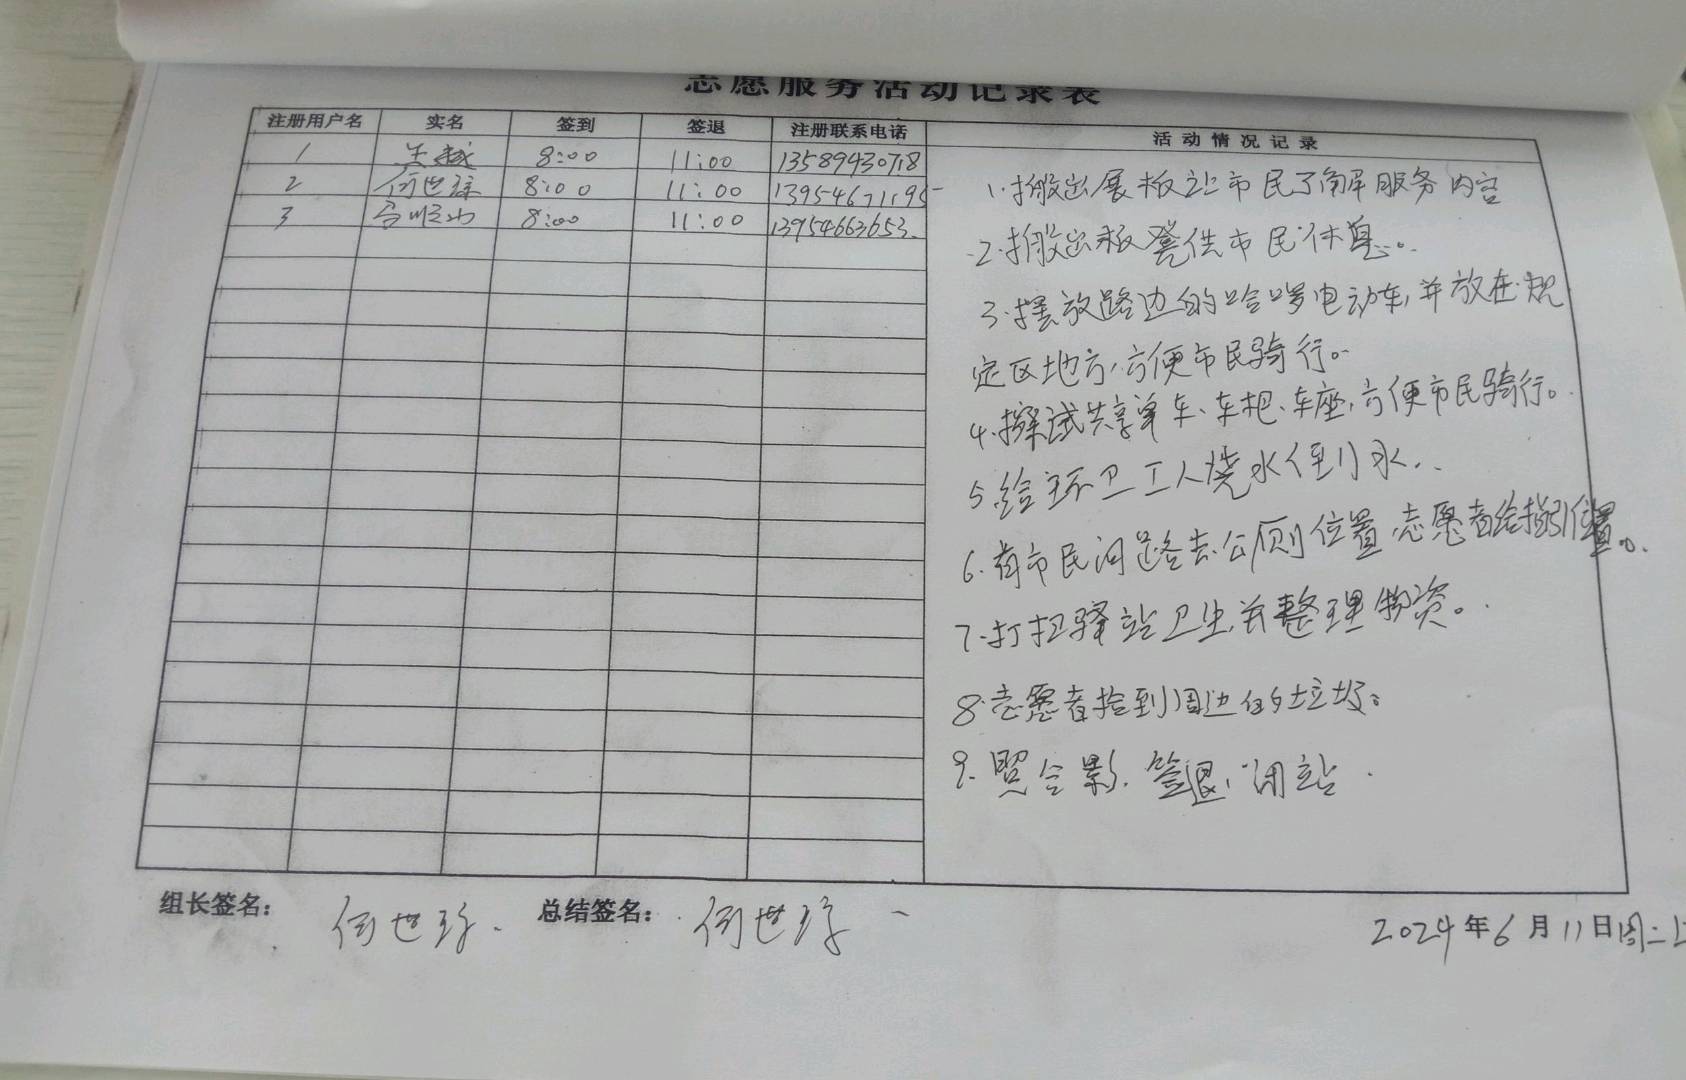 志愿服务活动记录表
注册用户名 实名 签到 签退 注册联系电话 活动情况记录
1 8:00 11:00 13589430718
2 何世 8:00 11:00 1395467119
3 8:00 11:00 13954663653.
1.搬出展板让市民了解服务内容
2.搬出板凳供市民休息。
3.摆放路边的哈啰电动车,并放在规
定区地方,方便市民骑行。
4.擦试共享单车、车把、车座,方便市民骑行。
5.给环卫工人烧水倒水..
6.有市民问路去公厕位置,志愿者给指引位置。
7.打扫驿站卫生,并整理物资。
8.志愿者捡到周边的垃圾。
9.照合影.签退,闭站.
组长签名: 何世 总结签名: 何世
2024年6月11日周二上